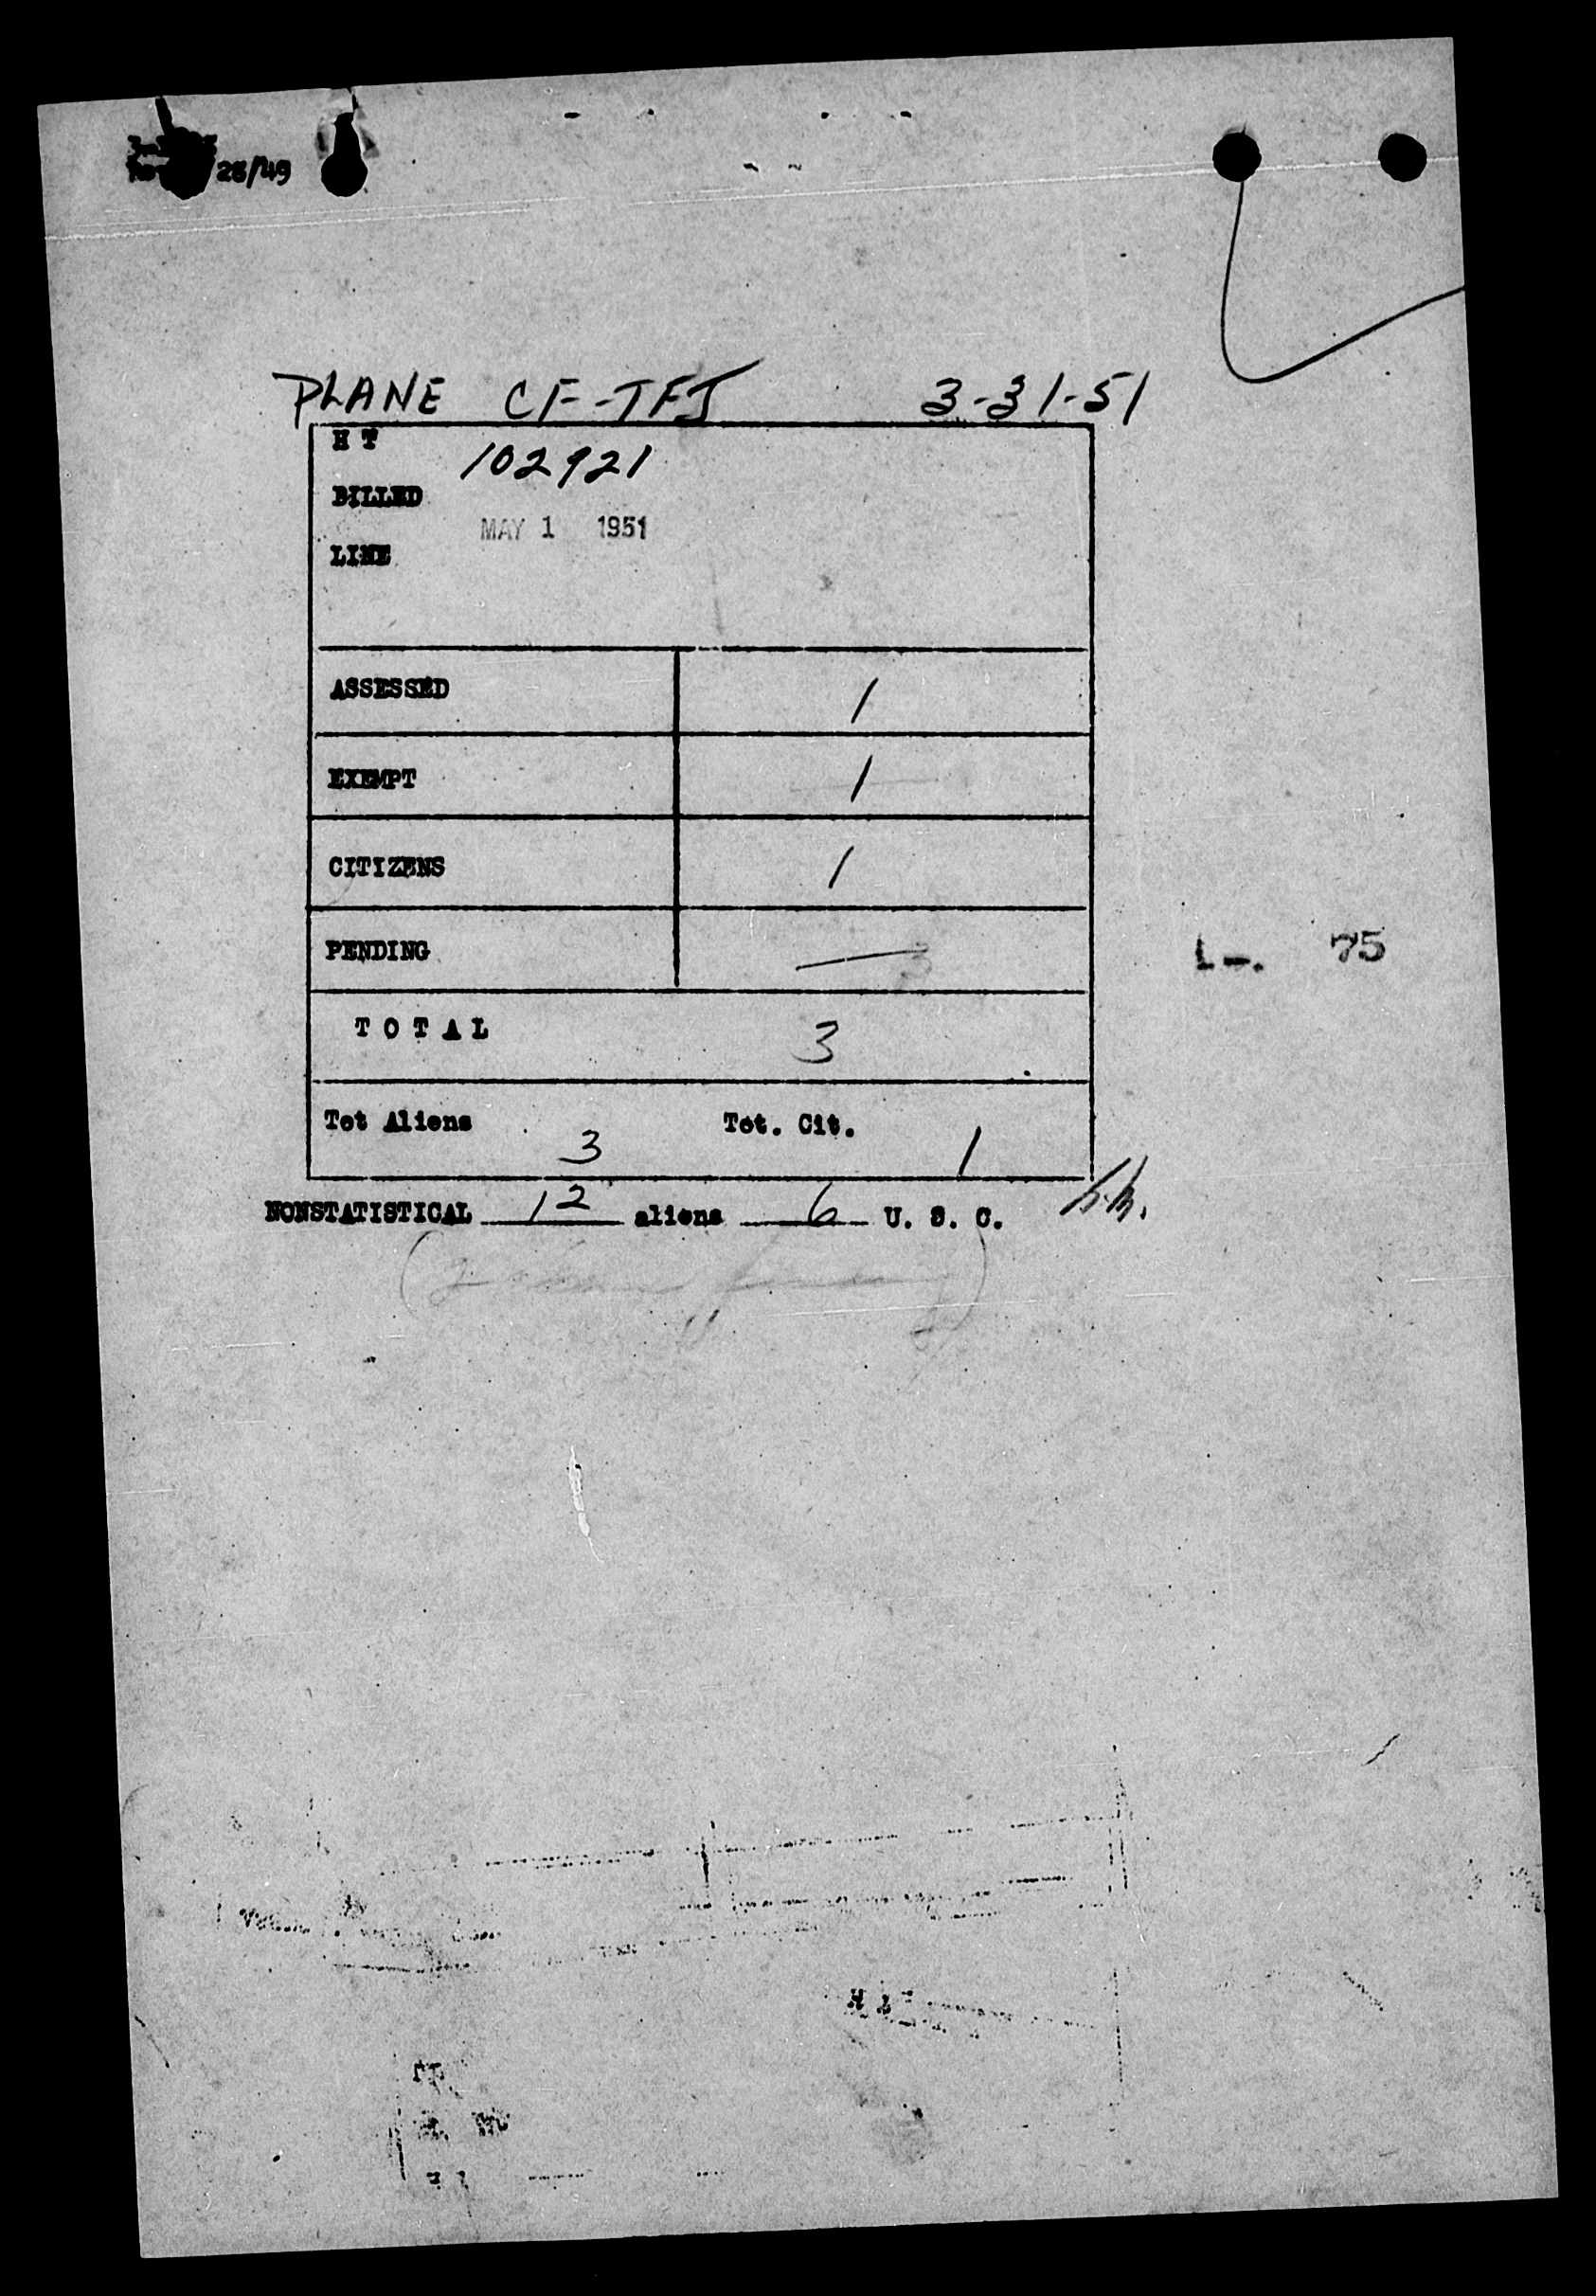 28/49
PLANE CF-TFJ 3-31-51
H T 102921
BILLED
MAY 1 1951
LINE
ASSESSED 1
EXEMPT 1
CITIZENS 1
PENDING —
1-. 75
T O T A L 3
Tot Aliens 3 Tot. Cit. 1
NONSTATISTICAL 12 aliens 6 U. S. C.